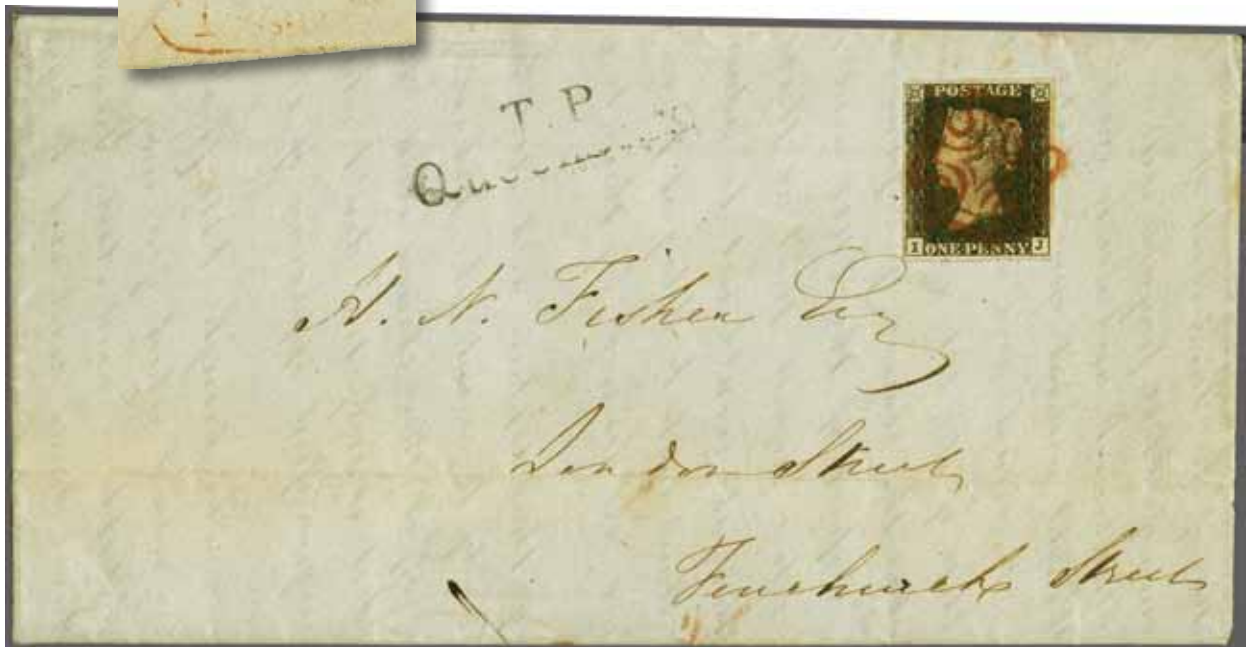 T.P
POSTAGE
I ONE PENNY J
H. N. Fisher Esq
London Street
Fenchurch Street